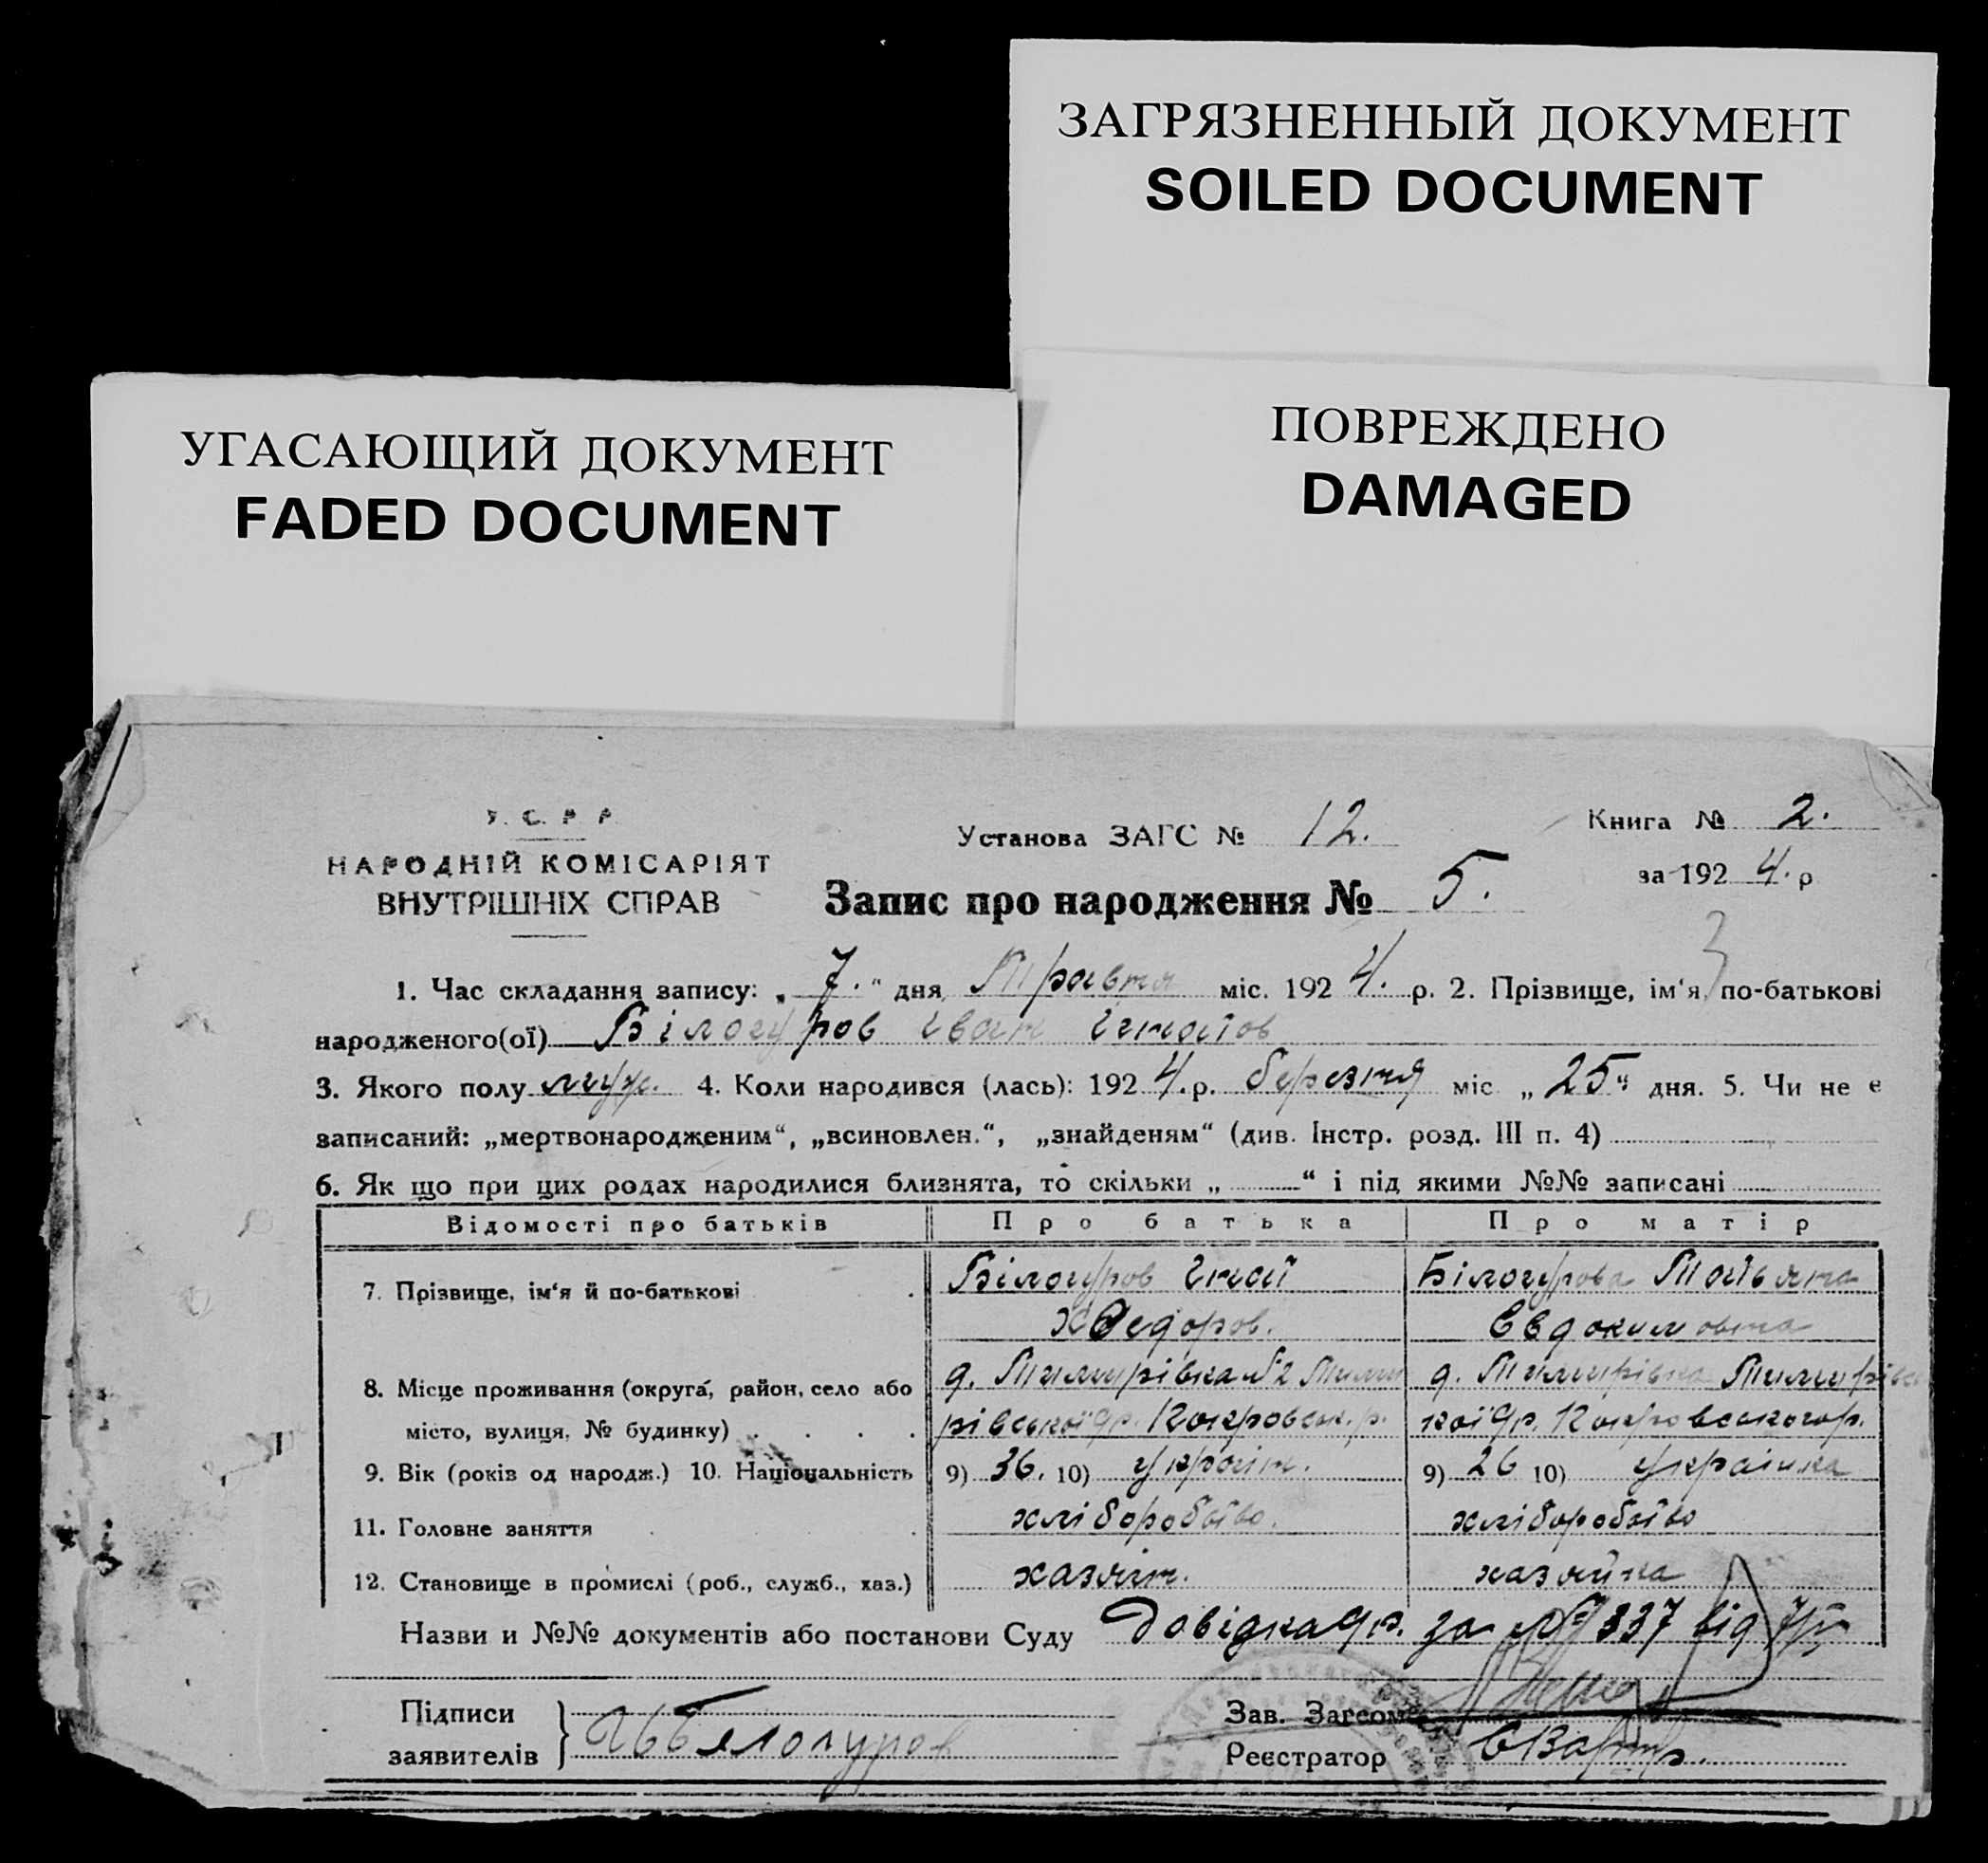 ЗАГРЯЗНЕННЫЙ ДОКУМЕНТ
SOILED DOCUMENT
УГАСАЮЩИЙ ДОКУМЕНТ
FADED DOCUMENT
ПОВРЕЖДЕНО
DAMAGED
У. С. Р Р
НАРОДНІЙ КОМІСАРІЯТ
ВНУТРІШНІХ СПРАВ
Установа ЗАГС № 12.
Книга № 2.
за 1924. р
Запис про народження № 5.
1. Час складання запису: „7." дня Травня міс. 1924. р. 2. Прізвище, ім'я, по-батькові
народженого(ої) Білогуров Іван Ігнатов
3. Якого полу муж. 4. Коли народився (лась): 1924. р. березня міс. „25" дня. 5. Чи не є
записаний: „мертвонародженим", „всиновлен.", „знайденям" (див. Інстр. розд. III п. 4)
6. Як що при цих родах народилися близнята, то скільки „ " і під якими №№ записані
Відомості про батьків Про батька Про матір
7. Прізвище, ім'я й по-батькові Білогуров Ігнат Білогурова Татьяна
Федоров. Евдокимовна
8. Місце проживання (округа, район, село або
місто, вулиця, № будинку) Покровськ. р. Покровського р.
9. Вік (років од народж.) 10. Національність 9) 36. 10) україн. 9) 26 10) українка
11. Головне заняття хліборобство. хліборобство
12. Становище в промислі (роб., служб., хаз.) хазяін. хазяйка
Назви и №№ документів або постанови Суду Довідка с/р. за № 337 від 7/V
Підписи
заявителів } И Белогуров
Зав. Загсом
Реєстратор